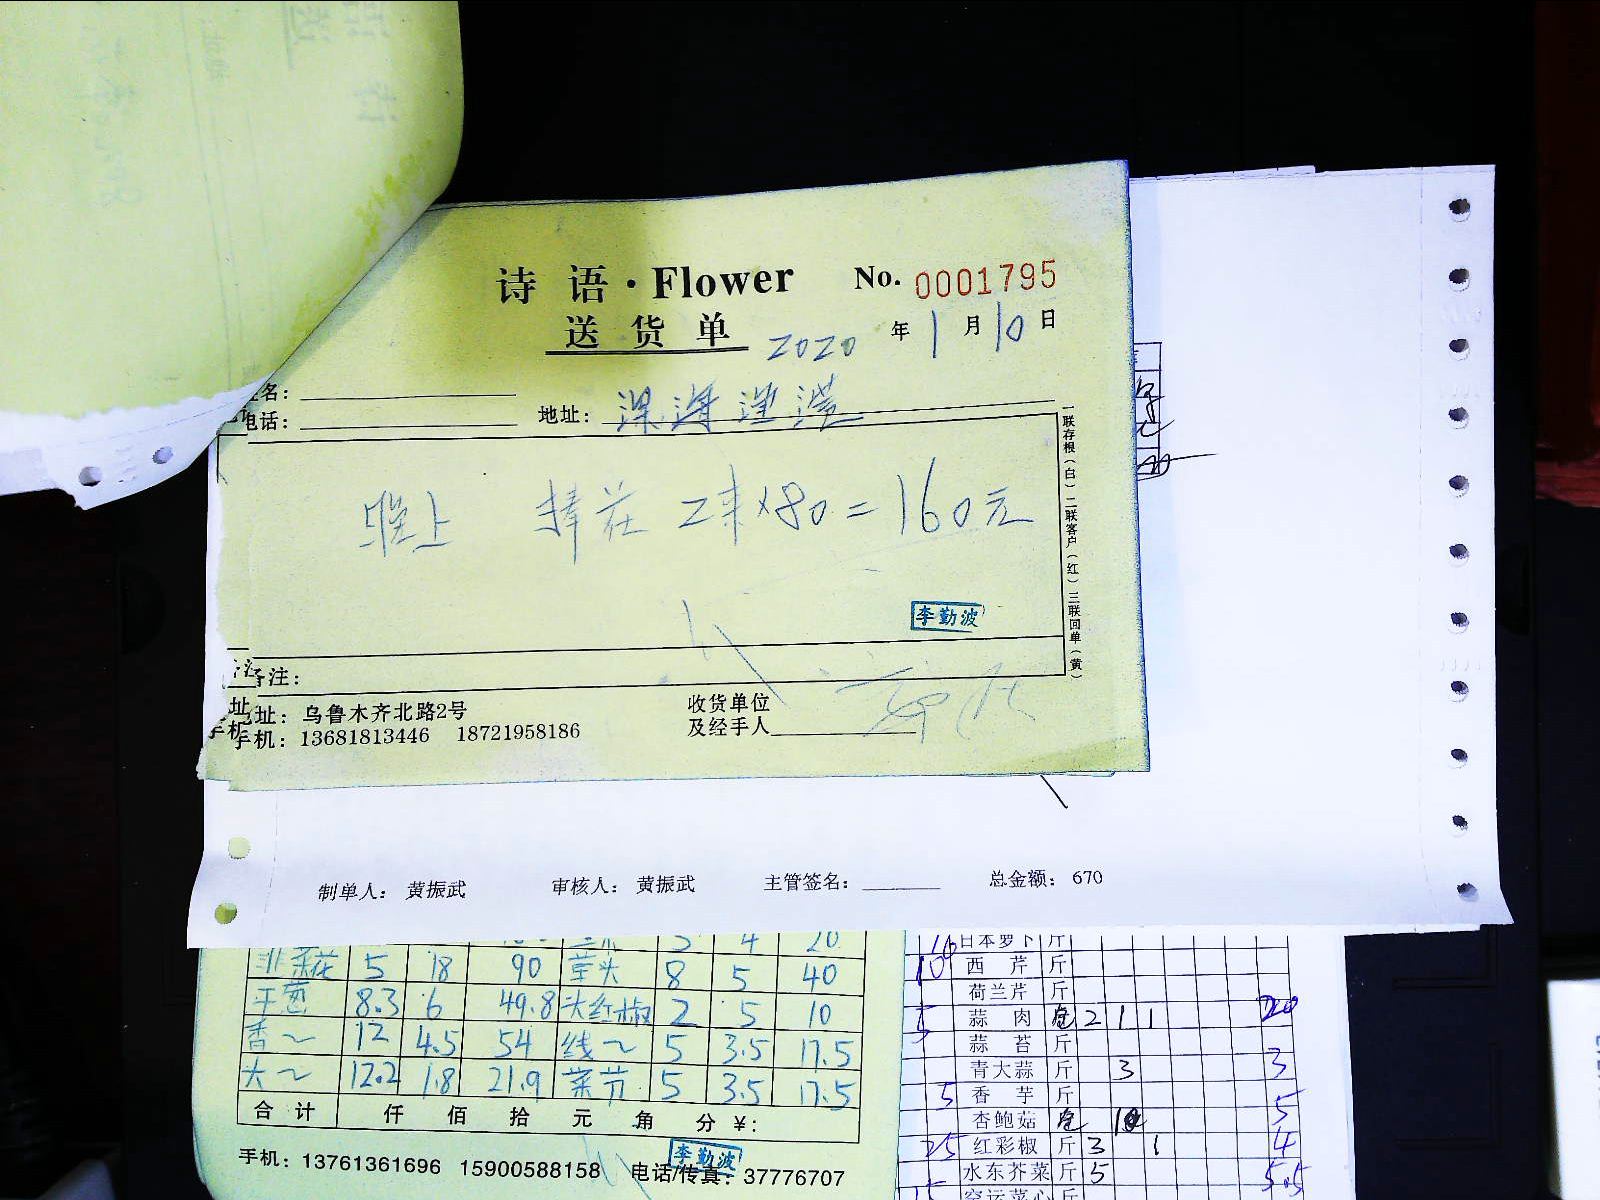 诗语·Flower No. 0001795
送货单 2020年1月10日
姓名：
电话： 地址：
晚上 捧花 2束×80=160元
李勤波
一联存根（白）二联客户（红）三联回单（黄）
备注：
地址：乌鲁木齐北路2号 收货单位
手机：13681813446 18721958186 及经手人
制单人：黄振武 审核人：黄振武 主管签名： 总金额：670
韭菜花 5 18 90 芋头 8 5 40
干葱 8.3 6 49.8 大红椒 2 5 10
香～ 12 4.5 54 线～ 5 3.5 17.5
大～ 12.2 1.8 21.9 菜节 5 3.5 17.5
合计 仟 佰 拾 元 角 分 ¥：
李勤波
手机：13761361696 15900588158 电话/传真：37776707
16 日本萝卜 斤
10 西芹 斤
荷兰芹 斤
5 蒜肉 2 1 1 20
蒜苔 斤
青大蒜 斤 3 3
5 香芋 斤 5
杏鲍菇
25 红彩椒 斤 3 1 4
水东芥菜 斤 5 5.5
空运菜心 斤